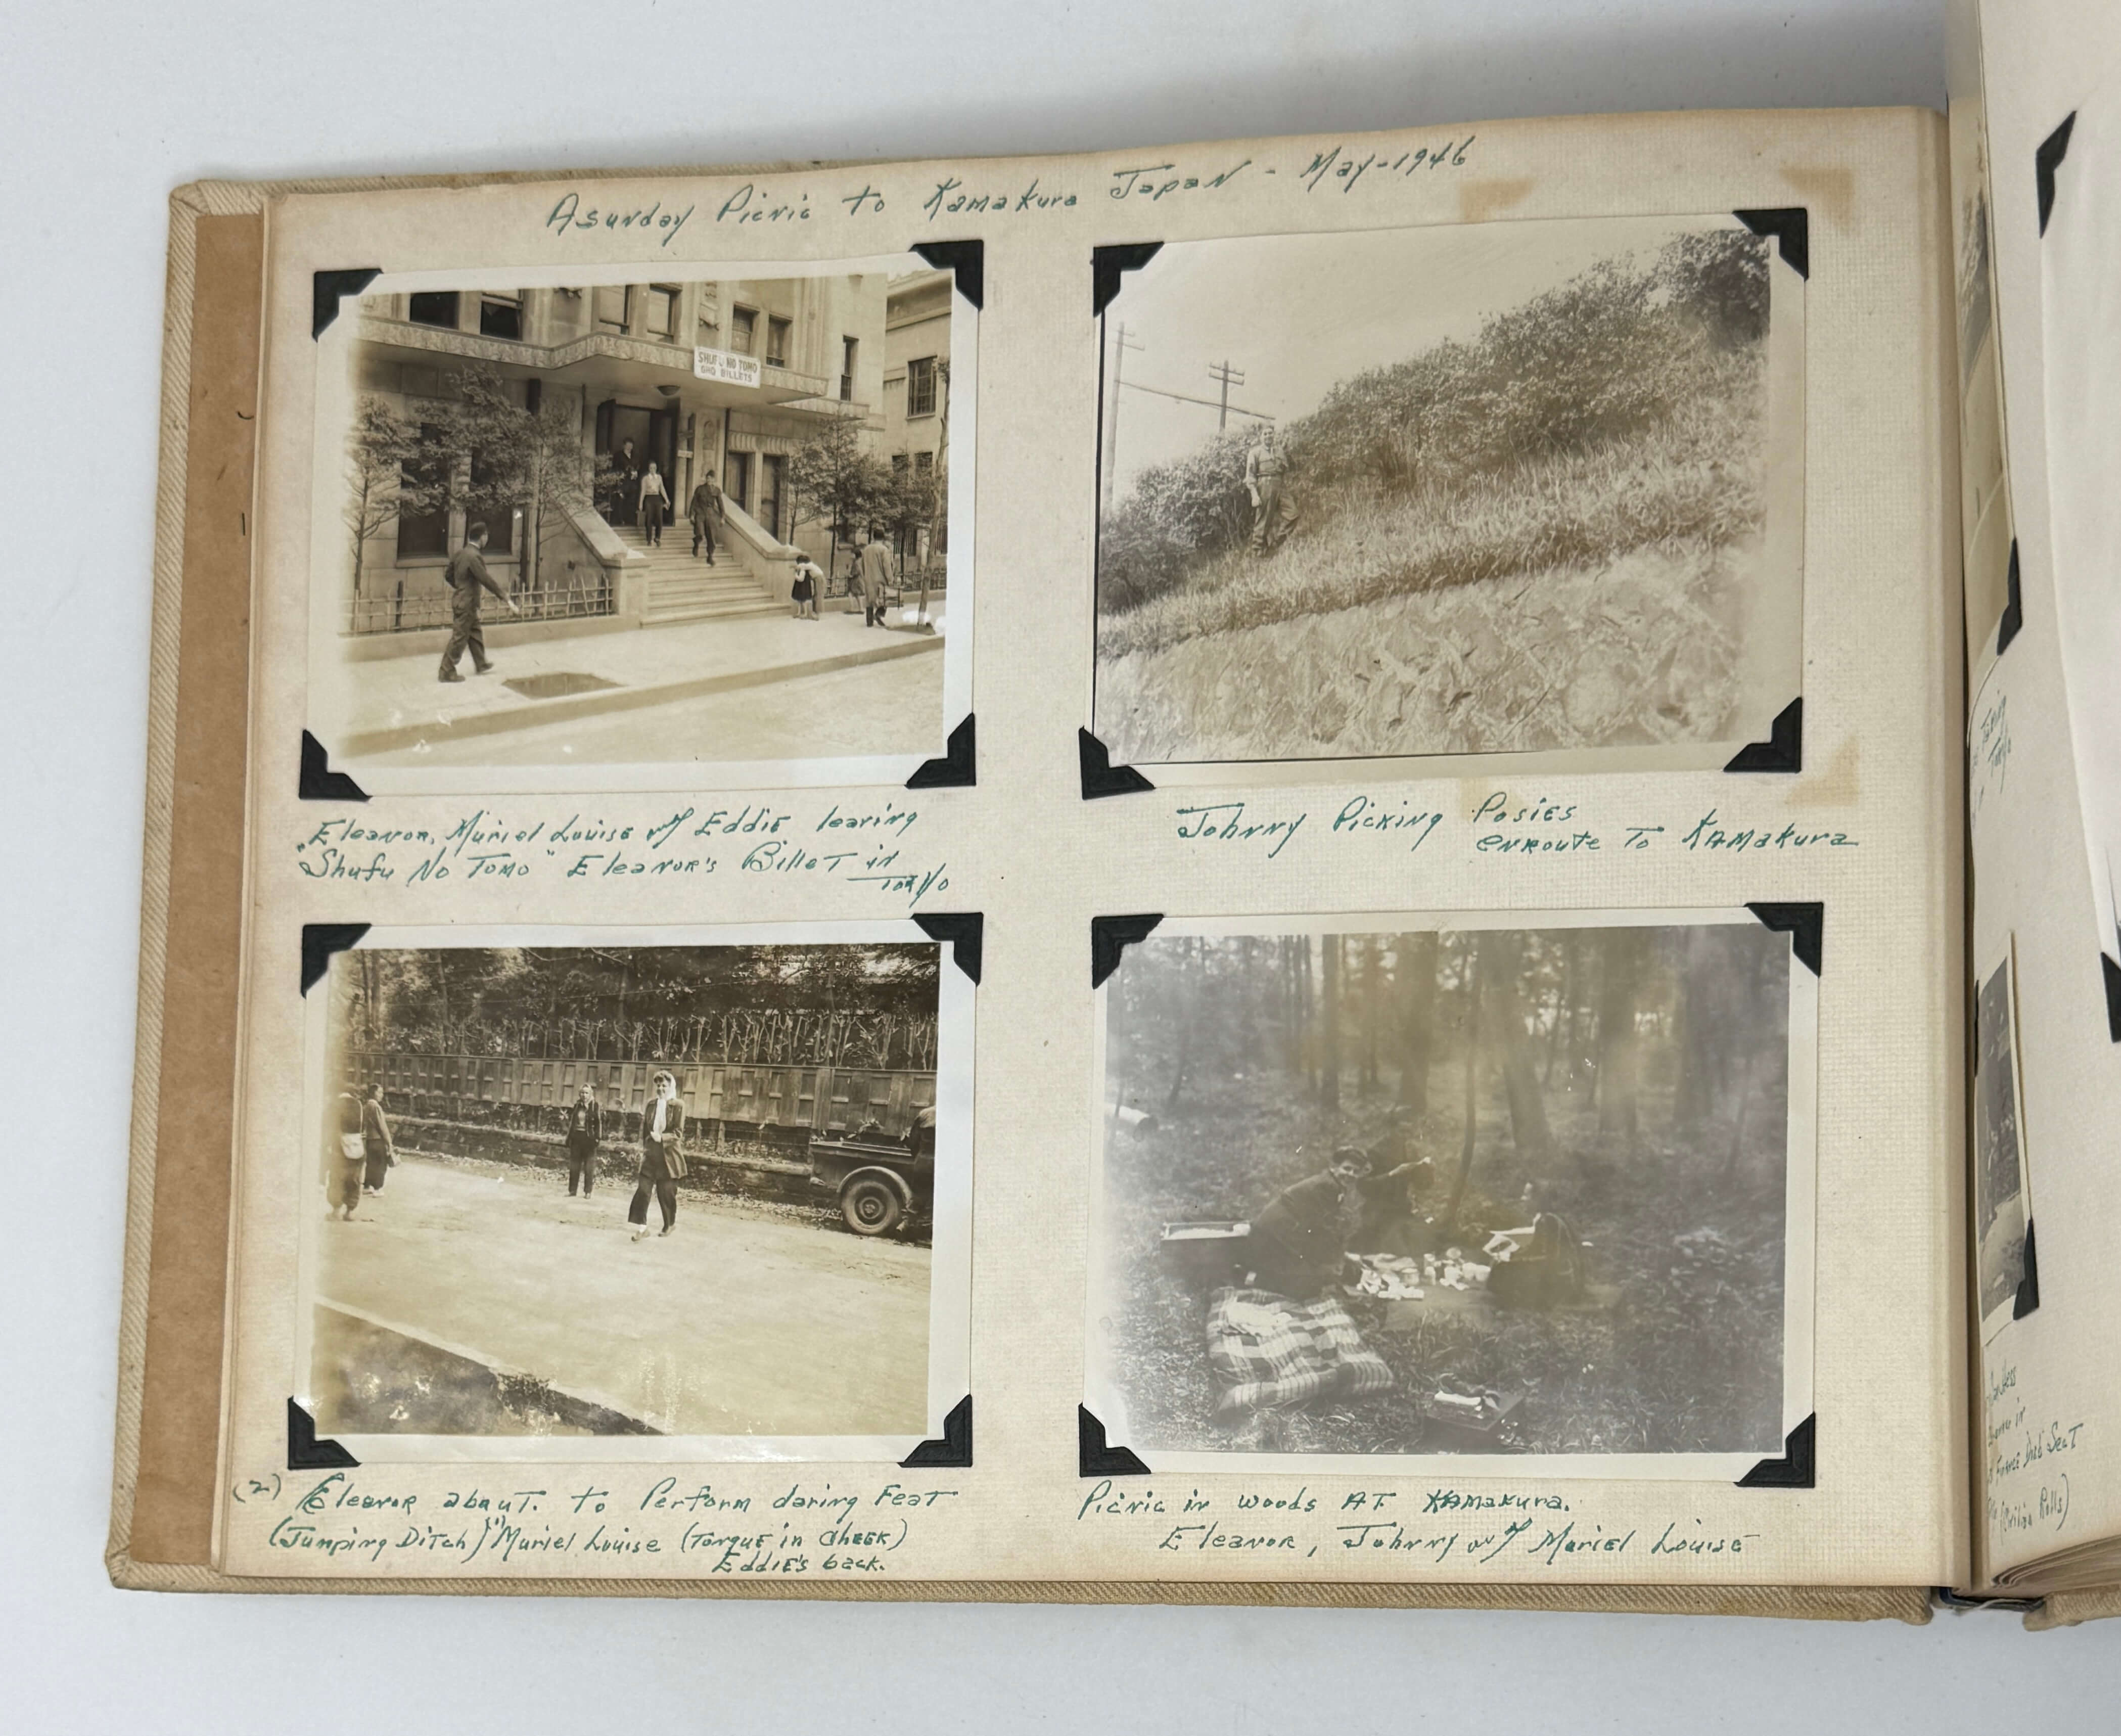 A Sunday Picnic to Kamakura Japan - May-1946
SHUFU NO TOMO
GHQ BILLETS
Eleanor, Muriel Louise and Eddie leaving
"Shufu No Tomo" Eleanor's Billet in
Tokyo
Johnny Picking Posies
enroute To Kamakura
(2) Eleanor about. to Perform daring Feat
(Jumping Ditch) (1) Muriel Louise (Tongue in cheek)
Eddie's back.
Picnic in woods AT Kamakura.
Eleanor, Johnny and Muriel Louise
in
Seat